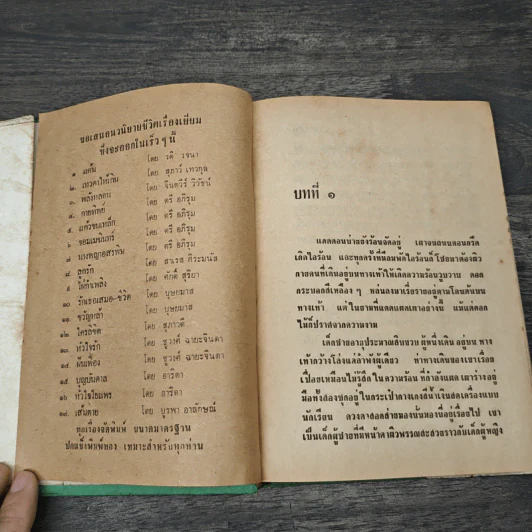 ขอเสนอนวนิยายชีวิตเรื่องเยี่ยม
ซึ่งจะออกในเร็ว ๆ นี้
๑ แค้น โดย รดี รจนา
๒. เทวดาให้กิน โดย สุภาว์ เทวกุล
๓. โดย จินตวีร์ วิวัธน์
๔. กายทิพย์ โดย ตรี อภิรุม
๕. แก้วขนเหล็ก โดย ตรี อภิรุม
๖. จอมเมฆินทร์ โดย ตรี อภิรุม
๗ นางพญาอสรพิษ โดย ตรี อภิรุม
๘ โดย สนธส ศิระมนัส
๙ โดย ศักดิ์ สุริยา
๑๐ รักเธอเสมอ-ชีวิต โดย บุษยมาส
๑๑ ขวัญกล้า โดย บุษยมาส
๑๒ ใครลิขิต โดย สุภาวดี
๑๓ หัวใจรัก โดย ชูวงศ์ ฉายะจินดา
๑๔ โดย ชูวงศ์ ฉายะจินดา
๑๕ บุญบันดาล โดย อาริตา
๑๖ หัวใจโยมพร โดย อาริตา
๑๗. เส้นตาย โดย บูรพา อาลักษณ์
ทุกเรื่องจัดพิมพ์ ขนาดมาตรฐาน
ปกแข็งพิมพ์ทอง เหมาะสำหรับทุกท่าน
บทที่ ๑
แดดตอนบ่ายยังร้อนจัดอยู่ เสาจนสนบดอนกรีต
เกิดไอร้อน และทุกครั้งที่ลมพัดไอร้อนก็โชยมาต้องผิว
กายคนที่เดินอยู่บนทางเท้าให้เกิดความร้อนวูบวาบ ดอก
กระบอกสีเหลือง ๆ หล่นลงมาเรี่ยรายอยู่ตามโคนต้นบน
ทางเท้า แต่ในยามที่แดดแผดเผาอย่างนี้ แม้แต่ดอก
ไม้ก็ปราศจากความงาม
เด็กชายอายุประมาณสิบขวบ ผู้หนึ่งเดิน อยู่บน ทาง
เท้ากว้างโล่งแต่ลำพังผู้เดียว ท่าทางเดินของเขาเรื่อย
เปื่อยเหมือนไม่รู้สึก ในความร้อน ที่กำลังแผด เผาร่างอยู่
มือทั้งสองซุกอยู่ ในกระเป๋ากางเกงสีน้ำเงินสดเครื่องแบบ
นักเรียน ดวงตาสอดส่ายมองนั่นมองนี่อยู่เรื่อยไป เขา
เป็นเด็กผู้ชายที่มีหน้าตาผิวพรรณสะสวยราวกับเด็กผู้หญิง